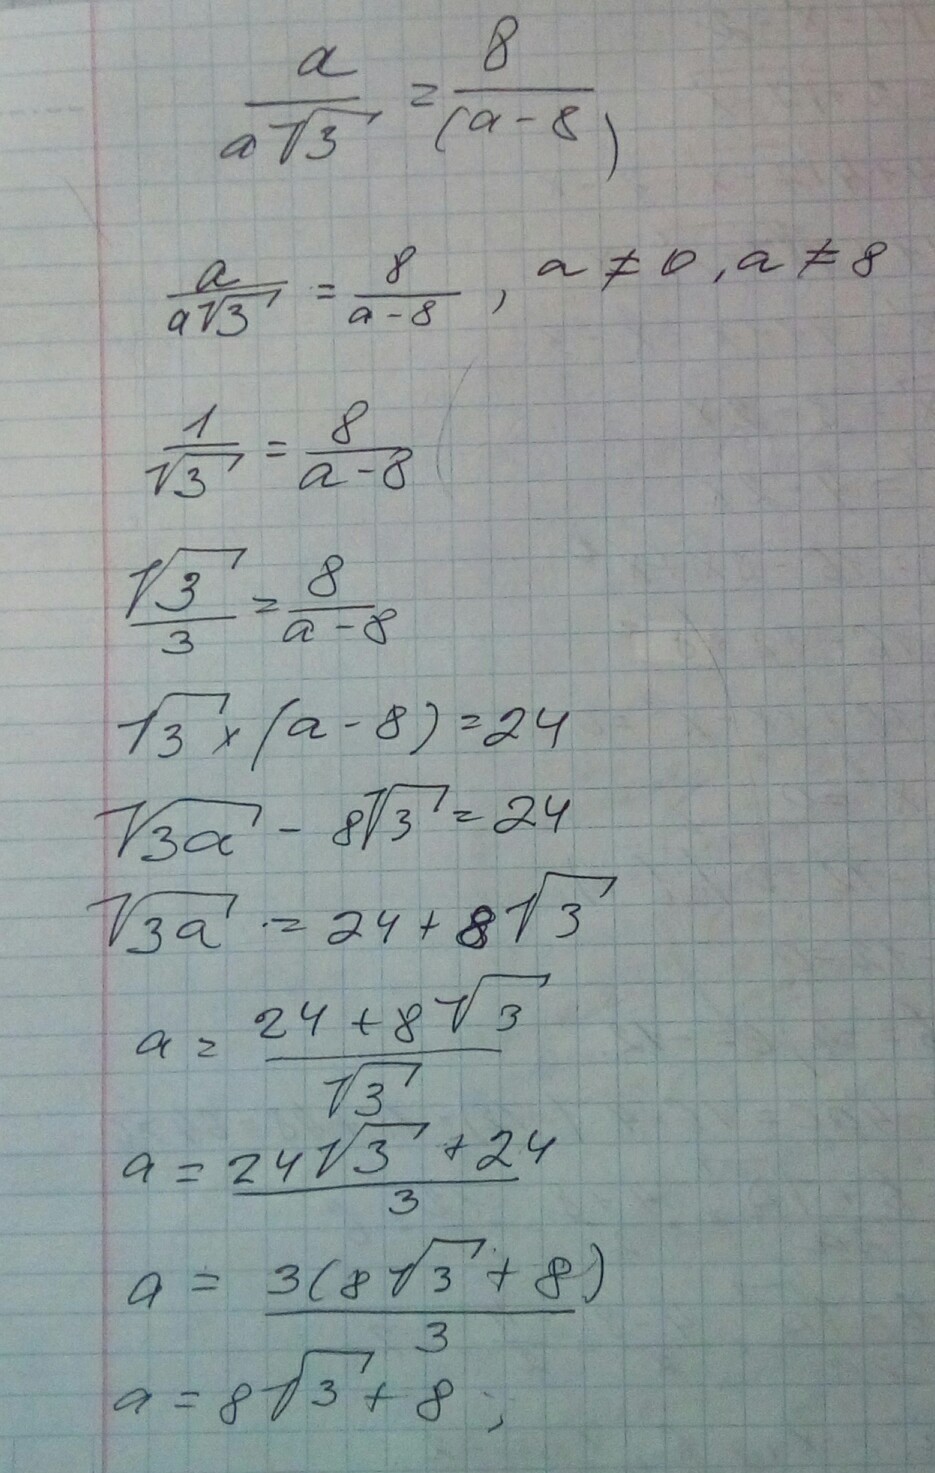 a/(a√3) = 8/(a-8)
a/(a√3) = 8/(a-8) , a ≠ 0 , a ≠ 8
1/√3 = 8/(a-8)
√3/3 = 8/(a-8)
√3 × (a-8) = 24
√(3a) - 8√3 = 24
√(3a) = 24 + 8√3
a = (24 + 8√3)/√3
a = (24√3 + 24)/3
a = 3(8√3 + 8)/3
a = 8√3 + 8 ;